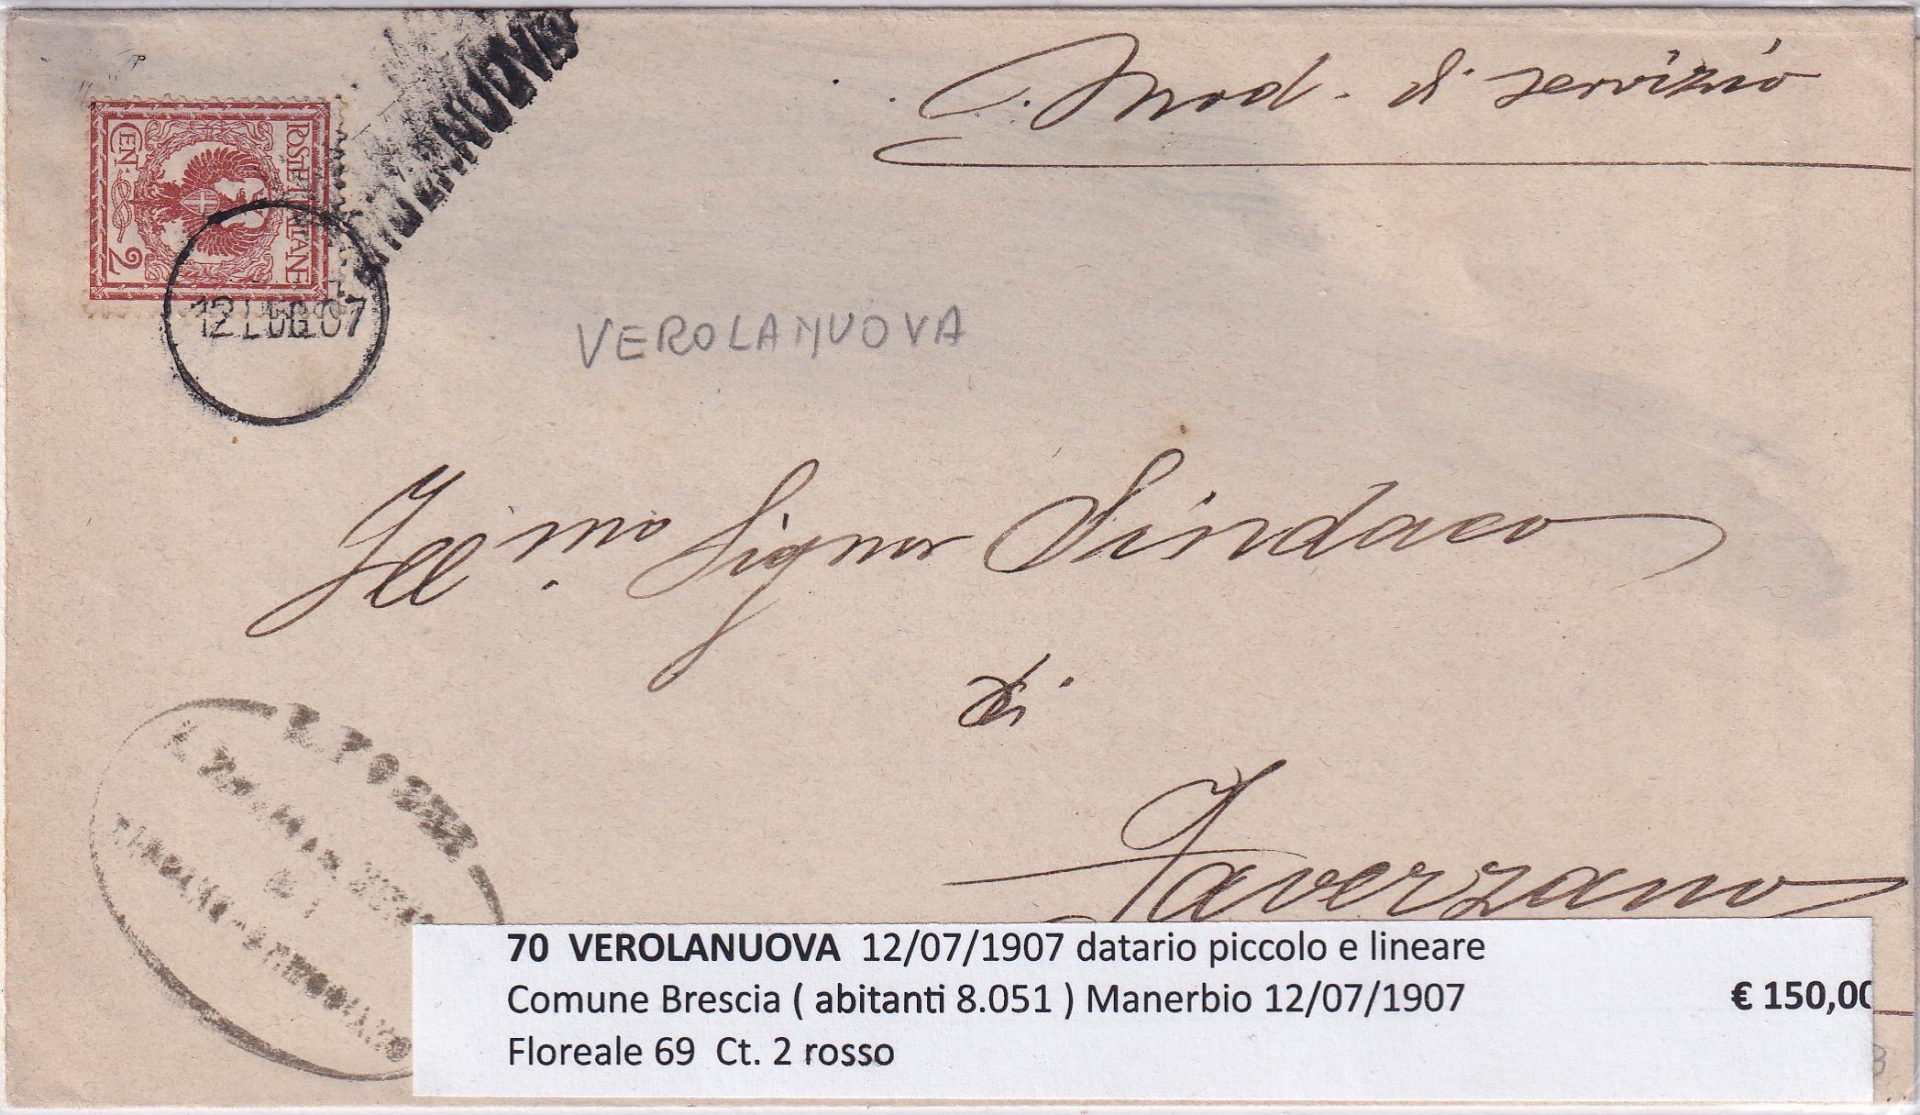 VEROLANUOVA
Mod. di servizio
POSTE ITALIANE
CEN. 2
12 LUG 07
VEROLANUOVA
Ill.mo Signor Sindaco
di
Faverzano
70 VEROLANUOVA 12/07/1907 datario piccolo e lineare
Comune Brescia ( abitanti 8.051 ) Manerbio 12/07/1907
€ 150,00
Floreale 69 Ct. 2 rosso